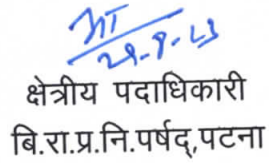 29-8-23
क्षेत्रीय पदाधिकारी
बि.रा.प्र.नि.पर्षद्,पटना